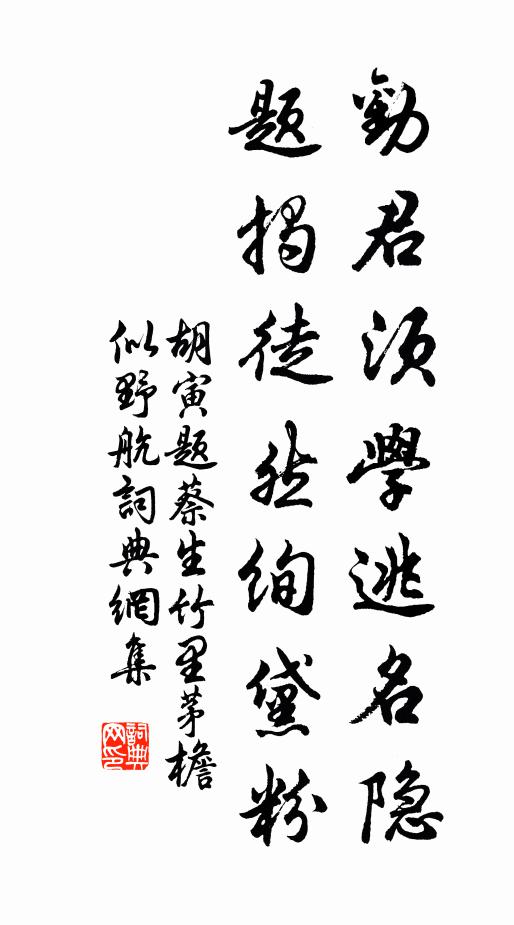 勸君須學逃名隐
題揭徒然絢黛粉
胡寅题蔡生竹里茅檐
似野航詞典網集
詞典网印